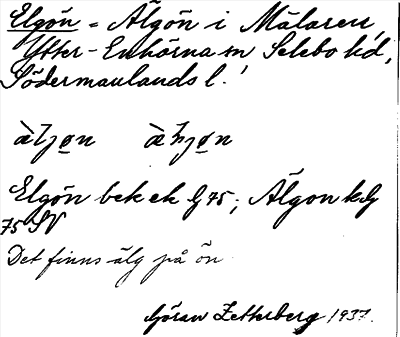 Elgön = Älgön i Mälaren,
Ytter-Enhörna sn Selebo hd,
Södermanlands l.
Elgön bek ek bg 75; Älgon kbg
75 SV
Det finns älg på ön
Göran Zetterberg 1937.